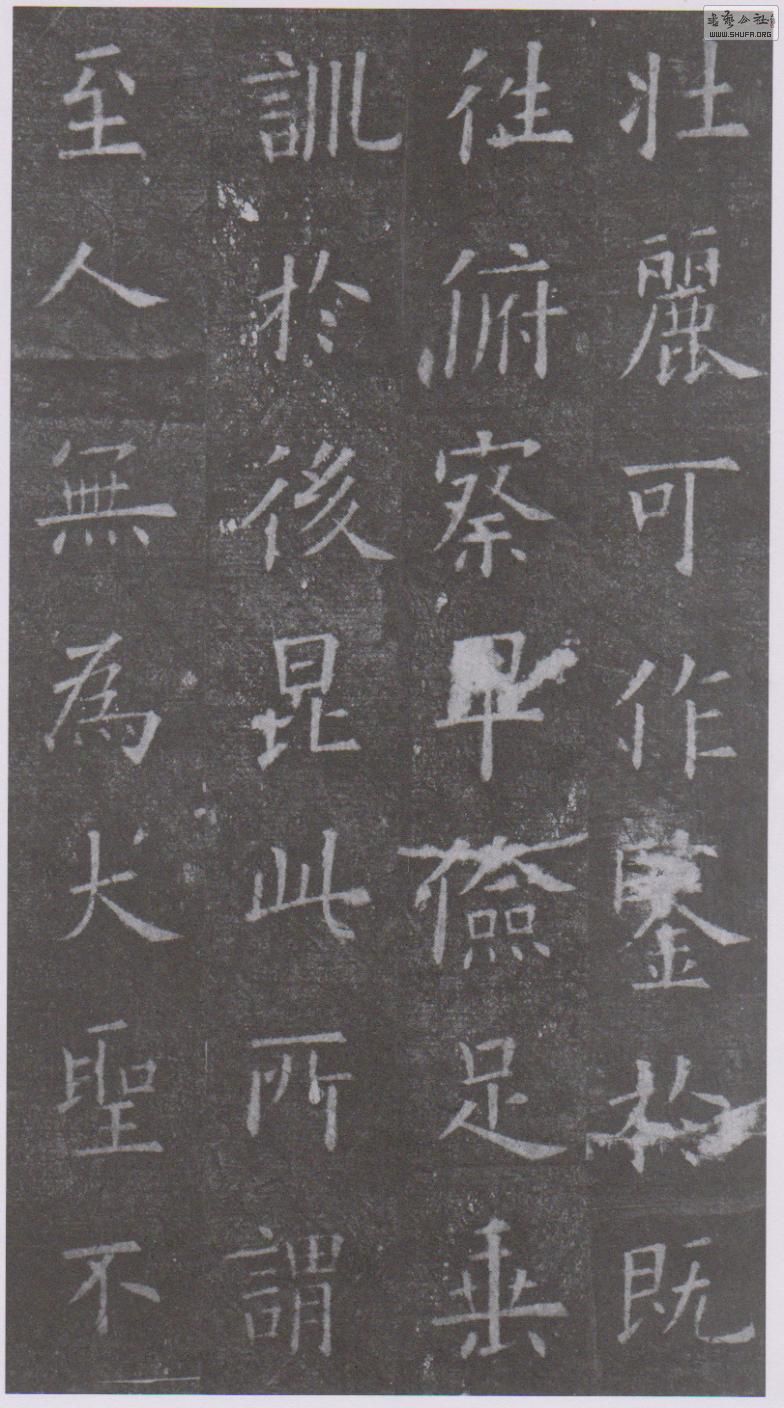 壯麗可作鑒於既
往俯察卑儉足垂
訓於後昆此所謂
至人無為大聖不
书艺公社
WWW.SHUFA.ORG